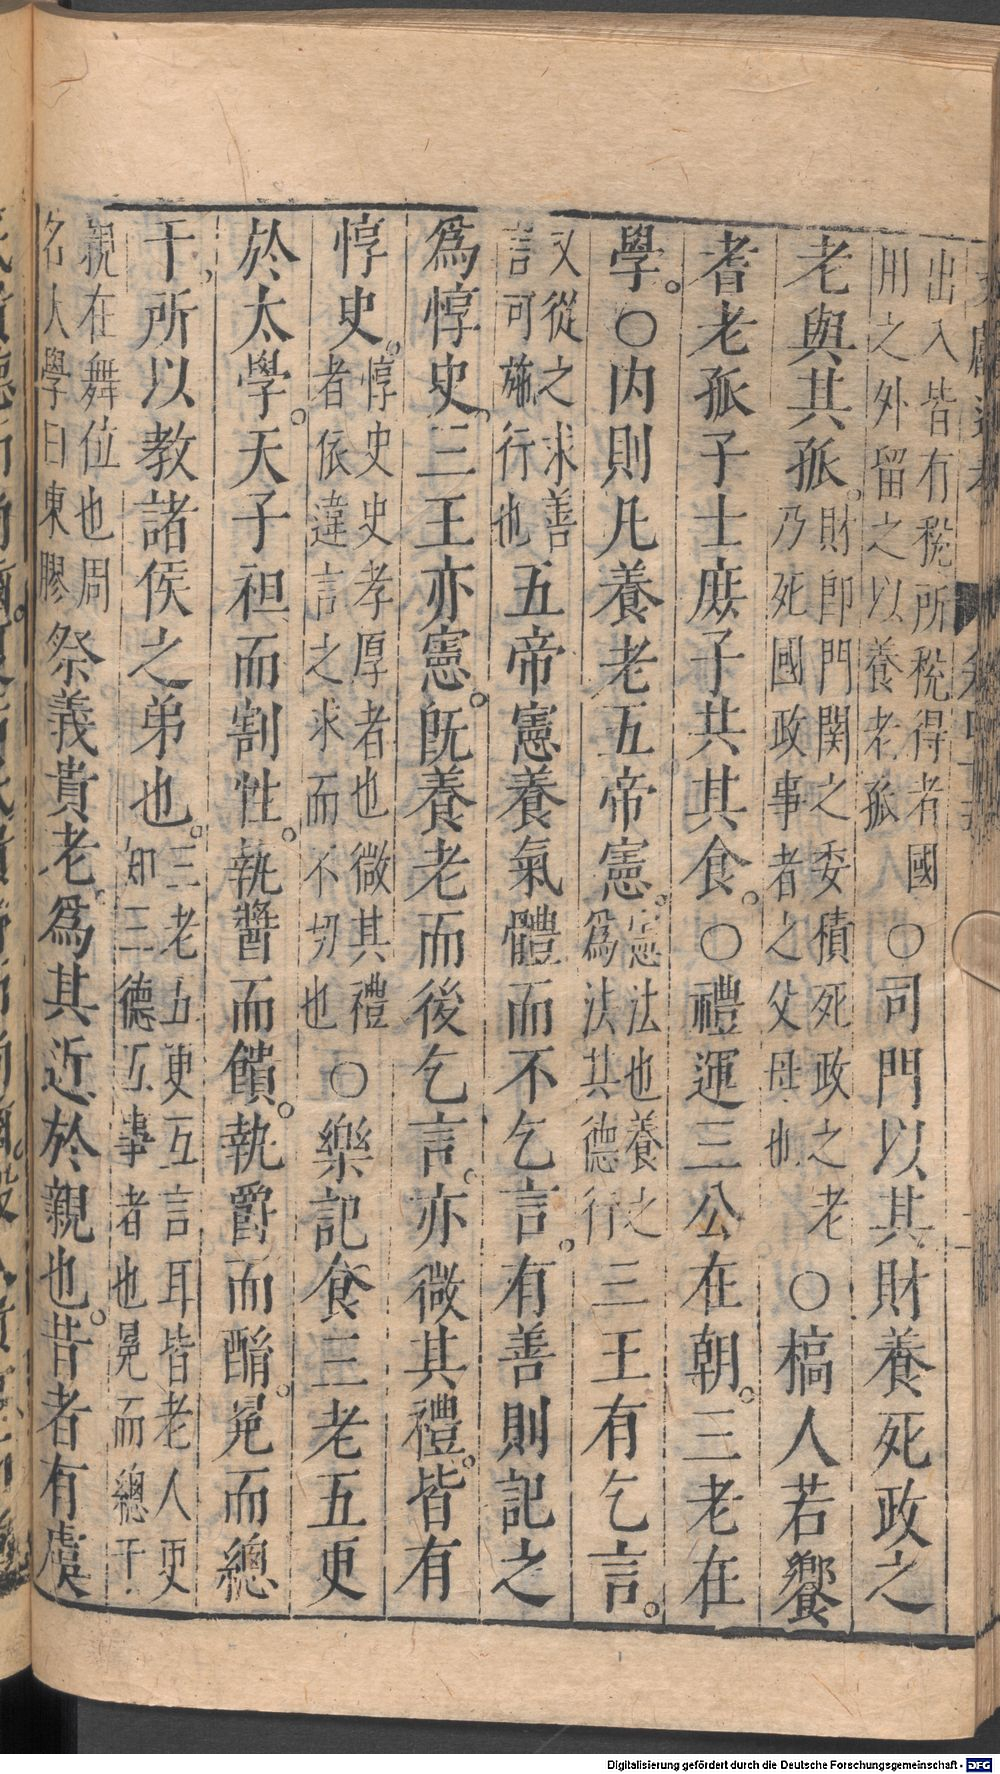 出入皆有稅所稅得者國
用之外留之以養老孤
○司門以其財養死政之
老與其孤。
財卽門関之委積死政之老
乃死國政事者之父母也
○槁人若饗
耆老孤子士庻子共其食。○禮運三公在朝。三老在
學。○内則凡養老五帝憲。
憲法也養之
爲法其德行
三王有乞言。
又從之求善
言可施行也
五帝憲養氣體而不乞言。有善則記之
爲惇史。三王亦憲。旣養老而後乞言。亦微其禮。皆有
惇史。
惇史史孝厚者也微其禮
者依違言之求而不切也
○樂記食三老五更
於太學。天子袒而割牲。執醬而饋。執爵而酳。冕而緫
干,所以教諸侯之弟也。
三老五更互言耳皆老人更
知三德五事者也冕而緫干
親在舞位也周
名大學曰東膠
祭義貴老。爲其近於親也。昔者有虞
Digitalisierung gefördert durch die Deutsche Forschungsgemeinschaft - DFG